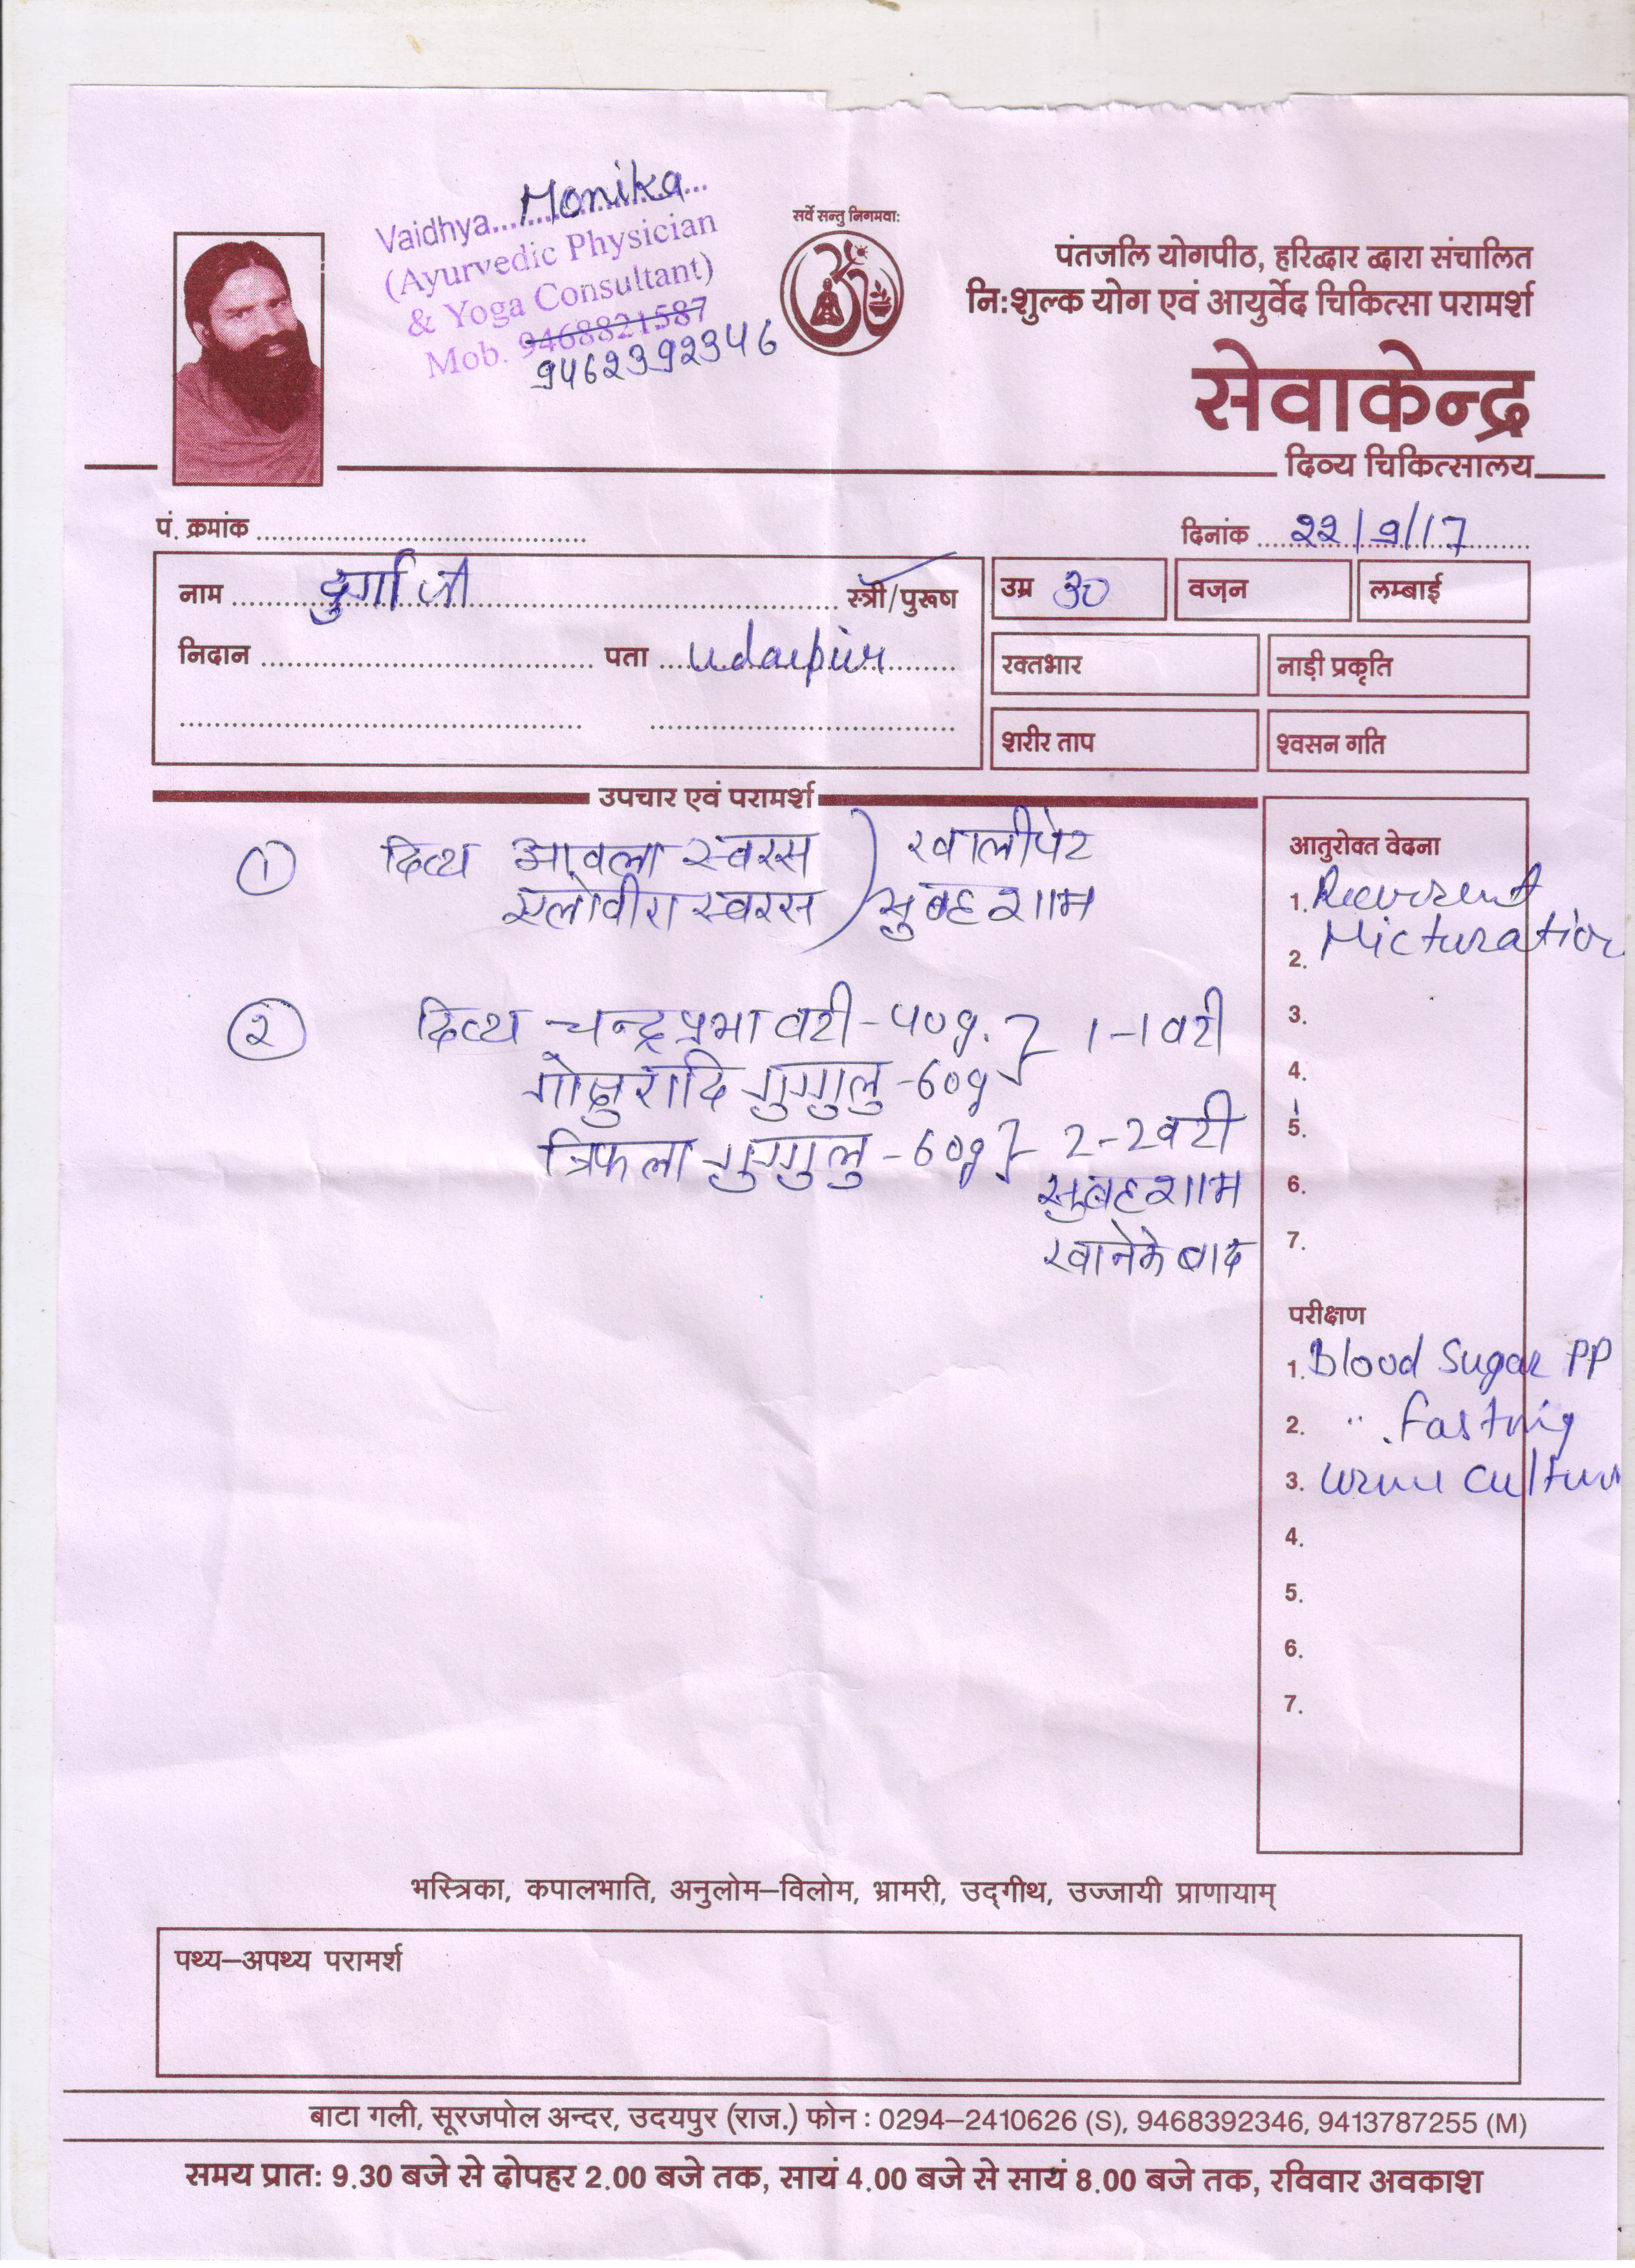 Vaidhya.... Monika...
(Ayurvedic Physician
& Yoga Consultant)
Mob. 9468821587
9462392346
सर्वे सन्तु निरामयाः
पंतजलि योगपीठ, हरिद्वार द्वारा संचालित
निःशुल्क योग एवं आयुर्वेद चिकित्सा परामर्श
सेवाकेन्द्र
दिव्य चिकित्सालय
पं. क्रमांक
दिनांक २२/९/17
नाम दुर्गा जी स्त्री/पुरूष
उम्र 30
वज़न
लम्बाई
निदान पता Udaipur
रक्तभार
नाड़ी प्रकृति
शरीर ताप
श्वसन गति
उपचार एवं परामर्श
① दिव्य आंवला स्वरस ) खालीपेट
एलोवीरा स्वरस ) सुबह शाम
② दिव्य चन्द्रप्रभा वटी - ५०g. } 1-1 वटी
गोक्षुरादि गुग्गुलु - 60g
त्रिफला गुग्गुलु - 60g } 2-2 वटी
सुबह शाम
खाने के बाद
आतुरोक्त वेदना
1. Recurrent
2. Micturation
3.
4.
5.
6.
7.
परीक्षण
1. Blood Sugar PP
2. " . fasting
3. urine culture
4.
5.
6.
7.
भस्त्रिका, कपालभाति, अनुलोम–विलोम, भ्रामरी, उद्‌गीथ, उज्जायी प्राणायाम्
पथ्य–अपथ्य परामर्श
बाटा गली, सूरजपोल अन्दर, उदयपुर (राज.) फोन : 0294–2410626 (S), 9468392346, 9413787255 (M)
समय प्रातः 9.30 बजे से दोपहर 2.00 बजे तक, सायं 4.00 बजे से सायं 8.00 बजे तक, रविवार अवकाश